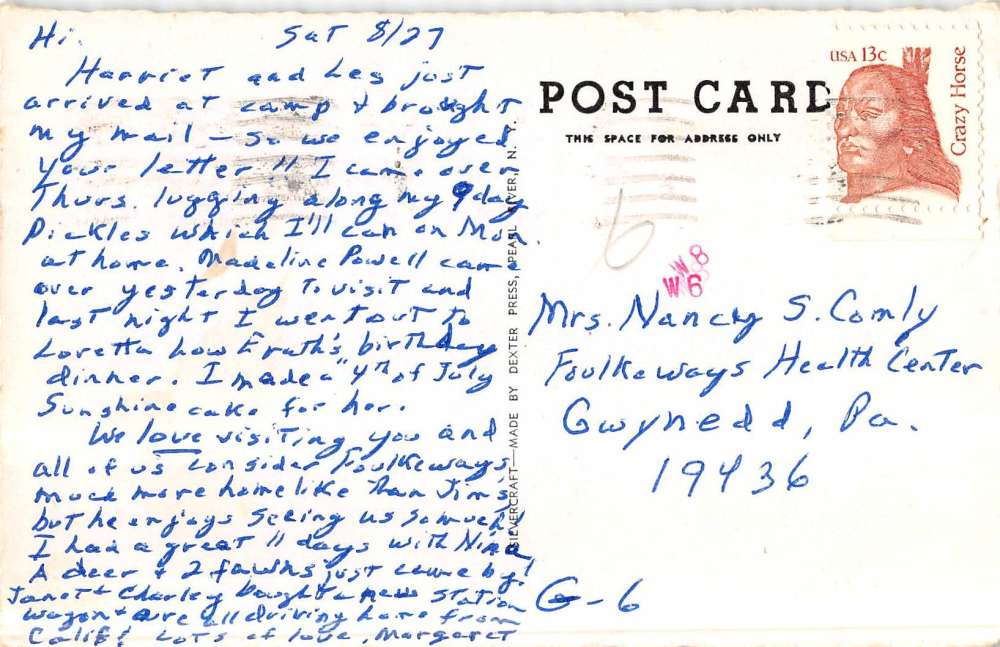 Hi. Sat 8/27
Harriet and Les just
arrived at camp & brought
my mail – so we enjoyed
your letter!! I came over
Thurs. lugging along my 9 day
Pickles which I'll can on Mon.
at home. Madeline Powell came
over yesterday to visit and
last night I went out to
Loretta Low Erath's birthday
dinner. I made a "4th of July
Sunshine cake for her.
We love visiting you and
all of us consider Foulkeways
much more homelike than Jim's
but he enjoys seeing us so much!
I had a great 11 days with Nina!
A deer & 2 fawns just came by!
Janet & Charley bought a new station
wagon & are all driving here from
Calif! Lots of love, Margaret
SILVERCRAFT—MADE BY DEXTER PRESS, PEARL RIVER, N. Y.
POST CARD
THIS SPACE FOR ADDRESS ONLY
USA 13c
Crazy Horse
6
W 8
W 6
Mrs. Nancy S. Comly
Foulkeways Health Center
Gwynedd, Pa.
19436
G-6